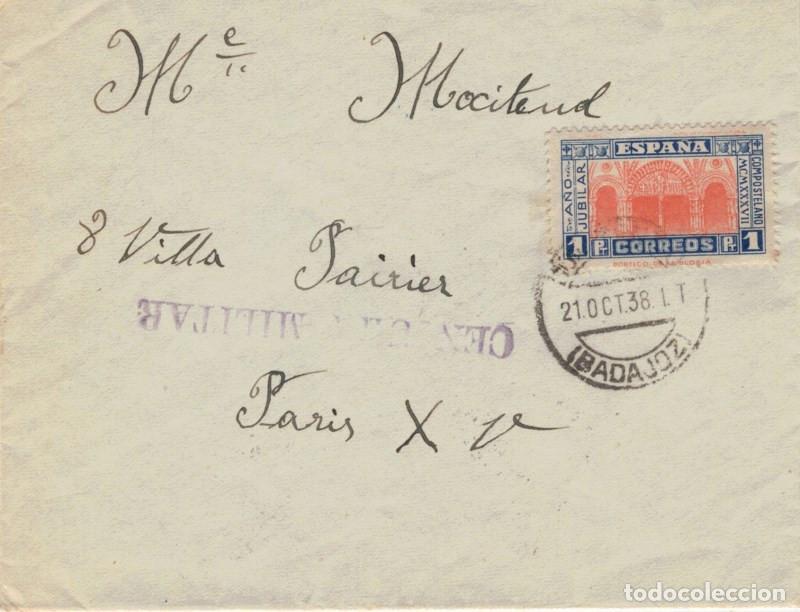 Mˡˡᵉ Mocitend
ESPAÑA
AÑO JUBILAR
COMPOSTELANO
MCMXXXVII
1 P. CORREOS Pᵗ. 1
PORTICO DE LA GLORIA
8 Villa Pairier
21.OCT.38. 1. T
(BADAJOZ)
CENSURA MILITAR
Paris X V
todocoleccion
todocoleccion.net